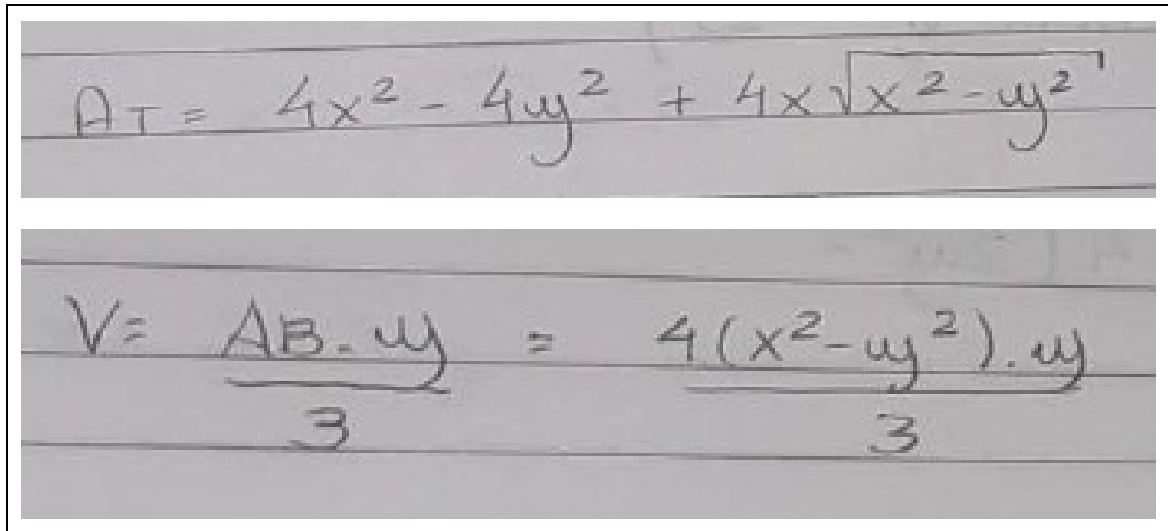 A_T = 4x² - 4y² + 4x√(x² - y²)
V = (A_B . y)/3 = (4(x² - y²) . y)/3